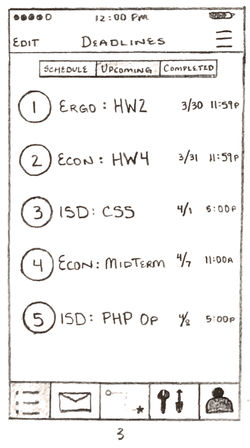 12:00 PM
EDIT DEADLINES
SCHEDULE UPCOMING COMPLETED
1 ERGO: HW2 3/30 11:59P
2 ECON: HW4 3/31 11:59P
3 ISD: CSS 4/1 5:00P
4 ECON: MIDTERM 4/7 11:00A
5 ISD: PHP OP 4/8 5:00P
3